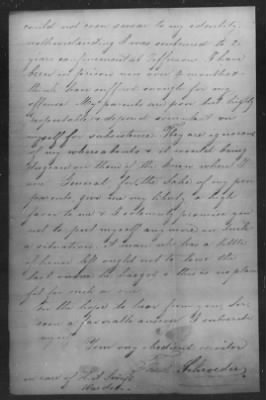 could not even swear to my identity
notwithstanding I was sentenced to 2
years confinement at Jefferson. I have
been in prison now over 4 months &
think have suffered enough for my
offence. My parents are poor but highly
respectable & depend somewhat on
myself for subsistence. They are ignorant
of my whereabouts & it would bring
disgrace on them if the knew where I
am. General for the sake of my poor
parents, give me my liberty a high
favor to me & I solemnly promise you
not to put myself any more in such
a situation. A man who has a little
of honor left ought not to lose the
last
fit for such a one.
In the hope to hear from you, Sir
soon a favorable answer I subscribe
myself
Your very obedient servitor
Schroeder
in care of
Warden